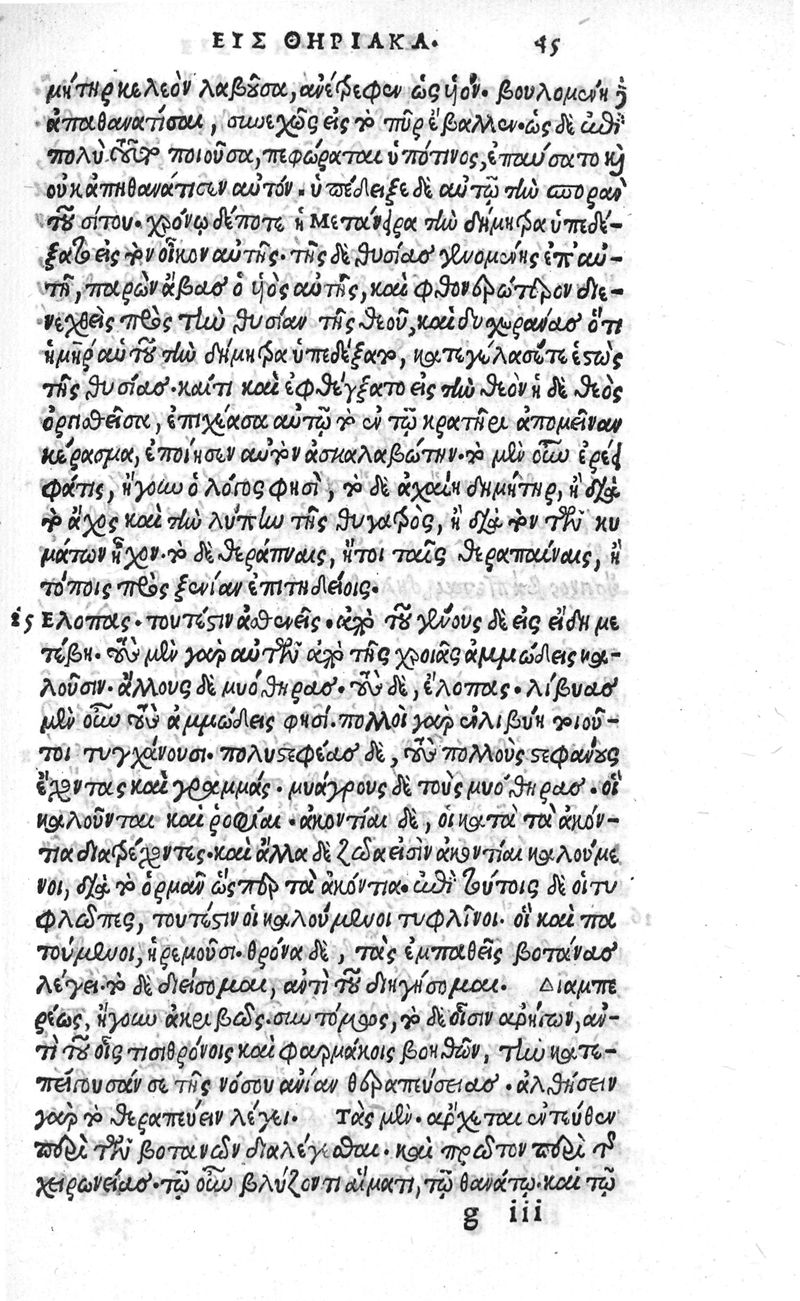 ΕΙΣ ΘΗΡΙΑΚΑ. 45
μήτηρ κελεὸν λαβοῦσα, ανέτρεφεν ὡς ὑιόν. βουλομένη καὶ
ἀπαθανατίσαι, συνεχῶς εἰς τὸ πῦρ ἔβαλλεν. ὡς δὲ ἐπὶ
πολὺ τοῦτο ποιοῦσα, πεφώραται ὑπότινος, ἐπαύσατο καὶ
οὐκ ἀπηθανάτισεν αὐτόν. ὑπέδειξε δὲ αυτῷ τὴν σπορὰν
τοῦ σίτου. χρόνῳ δέποτε ἡ Μετάνειρα τὴν δήμητρα ὑπεδέ-
ξατο εἰς τὸν οἶκον αυτῆς. τῆς δὲ θυσίας γενομένης ἐπ' αυ-
τῇ, παρὼν ἄβας ὁ ὑιὸς αὐτῆς, καὶ φθονερώτερον διε-
νεχθεὶς πρὸς τὴν θυσίαν τῆς θεοῦ, καὶ δυχεράνας ὅτι
ἡ μήτηρ αὐτοῦ τὴν δήμητρα ὑπεδέξατο, κατεγέλασέτε ἑστὼς
τῆς θυσίας. καίτι καὶ ἐφθέγξατο εἰς τὴν θεὸν ἡ δὲ θεὸς
ὀργισθεῖσα, ἐπιχέασα αυτῷ τὸ ἐν τῷ κρατῆρι ἀπομεῖναν
κέρασμα, ἐποίησεν αὐτὸν ἀσκαλαβώτην. τὸ μὲν οὖν ἐρέει
φάτις, ἤγουν ὁ λόγος φησὶ, τὸ δὲ ἀχαίη δημήτηρ, ἢ διὰ
τὸ ἄχος καὶ τὴν λύπην τῆς θυγατρὸς, ἢ διὰ τὸν τῶν κυ
μάτων ἦχον. τὸ δὲ θεράπναις, ἤτοι ταῖς θεραπαίναις, ἢ
τόποις πρὸς ξενίαν ἐπιτηδείοις.
ις Ελοπας. τουτέστιν ἀσθενεῖς. ἀπὸ τοῦ γένους δὲ εἰς εἴδη με
τέβη. τοὺς μὲν γὰρ αυτῶν ἀπὸ τῆς χροιᾶς ἀμμώδεις κα-
λοῦσιν. ἄλλους δὲ μυοθήρας. τοὺς δὲ, ἔλοπας. λίβυας
μὲν οὖν τοὺς ἀμμώδεις φησί. πολλοὶ γὰρ ἐν λιβύῃ τοιοῦ-
τοι τυγχάνουσι. πολυστεφέας δὲ, τοὺς πολλοὺς στεφάνους
ἔχοντας καὶ γραμμάς. μυάγρους δὲ τοὺς μυοθήρας. οἳ
καλοῦνται καὶ ὀροφίαι. ἀκοντίαι δὲ, οἱ κατὰ τὰ ἀκόν-
τια διατρέχοντες. καὶ ἄλλα δὲ ζῶα εἰσὶν ἀκοντίαι καλούμε
νοι, διὰ τὸ ὁρμᾶν ὥσπερ τὰ ἀκόντια. ἐπὶ τούτοις δὲ οἱ τυ
φλῶπες, τουτέστιν οἱ καλούμενοι τυφλῖνοι. οἳ καὶ πα
τούμενοι, ἠρεμοῦσι. θρόνα δὲ, τὰς ἐμπαθεῖς βοτάνας
λέγει. τὸ δὲ διείσομαι, αντὶ τοῦ διηγήσομαι. Διαμπε
ρέως, ἤγουν ἀκριβῶς. συντόμως, τὸ δὲ οἷσιν ἀρήγων, αν-
τὶ τοῦ οἷς τισιθρόνοις καὶ φαρμάκοις βοηθῶν, τὴν κατε-
πείγουσάν σε τῆς νόσου ανίαν θεραπεύσειας. ἀλθήσειν
γὰρ τὸ θεραπεύειν λέγει. Τὰς μέν. ἄρχεται ἐντεῦθεν
περὶ τῶν βοτανῶν διαλέγεσθαι. καὶ πρῶτον περὶ τῆς
χειρωνείας. τῷ οὖν βλύζοντι αἵματι, τῷ θανάτῳ. καὶ τῷ
g iii